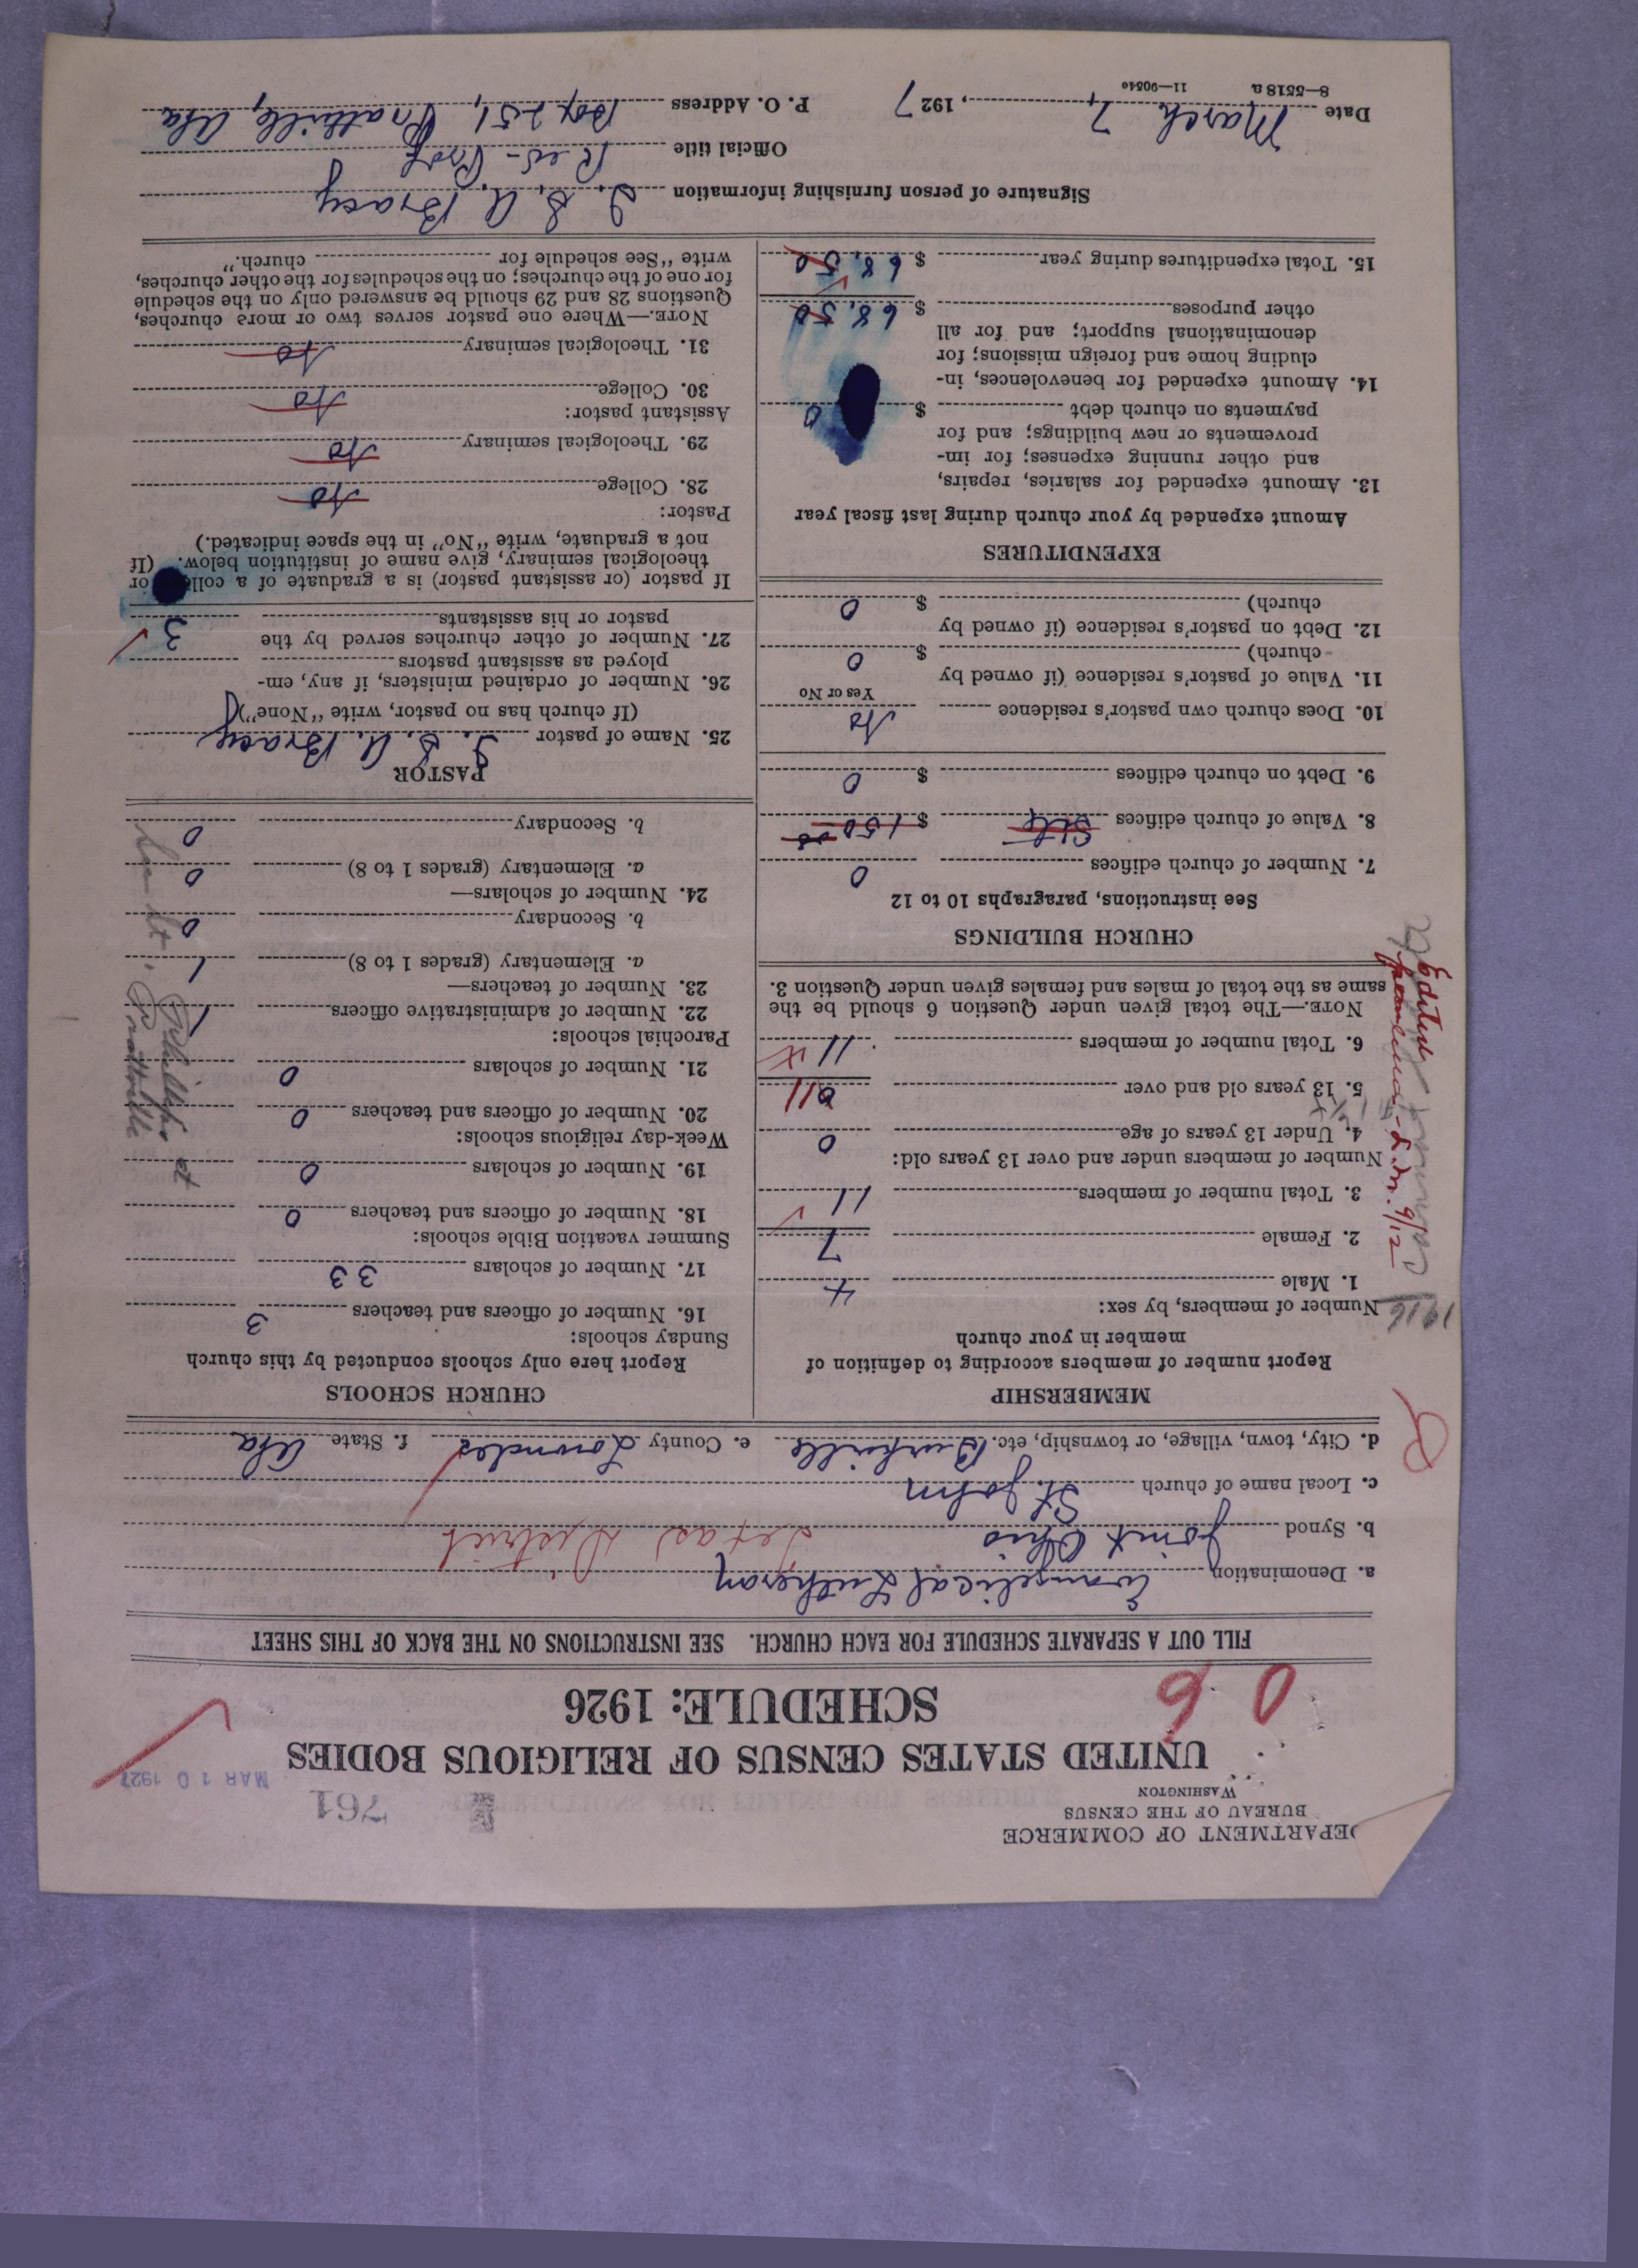 DEPARTMENT OF COMMERCE
BUREAU OF THE CENSUS
WASHINGTON
761
MAR 10 1927
UNITED STATES CENSUS OF RELIGIOUS BODIES
SCHEDULE: 1926
0 6
FILL OUT A SEPARATE SCHEDULE FOR EACH CHURCH. SEE INSTRUCTIONS ON THE BACK OF THIS SHEET
a. Denomination Evangelical Lutheran
b. Synod Joint Ohio Texas District
c. Local name of church St. John
d. City, town, village, or township, etc. Burkville e. County Lowndes f. State Ala
MEMBERSHIP
Report number of members according to definition of
member in your church
Number of members, by sex:
1. Male 4
2. Female 7
3. Total number of members 11
Number of members under and over 13 years old:
4. Under 13 years of age 0
5. 13 years old and over 11
6. Total number of members 11
NOTE.—The total given under Question 6 should be the
same as the total of males and females given under Question 3.
1916
Edited
9/12
CHURCH BUILDINGS
See instructions, paragraphs 10 to 12
7. Number of church edifices 0
8. Value of church edifices $ 150.00
9. Debt on church edifices $ 0
10. Does church own pastor's residence No
Yes or No
11. Value of pastor's residence (if owned by
church) $ 0
12. Debt on pastor's residence (if owned by
church) $ 0
EXPENDITURES
Amount expended by your church during last fiscal year
13. Amount expended for salaries, repairs,
and other running expenses; for im-
provements or new buildings; and for
payments on church debt $ 0
14. Amount expended for benevolences, in-
cluding home and foreign missions; for
denominational support; and for all
other purposes $ 68.50
15. Total expenditures during year $ 68.50
CHURCH SCHOOLS
Report here only schools conducted by this church
Sunday schools:
16. Number of officers and teachers 3
17. Number of scholars 33
Summer vacation Bible schools:
18. Number of officers and teachers 0
19. Number of scholars 0
Week-day religious schools:
20. Number of officers and teachers 0
21. Number of scholars 0
Parochial schools:
22. Number of administrative officers 1
23. Number of teachers—
a. Elementary (grades 1 to 8) 1
b. Secondary 0
24. Number of scholars—
a. Elementary (grades 1 to 8) 0
b. Secondary 0
Prattville
PASTOR
25. Name of pastor I. S. A. Bracy
(If church has no pastor, write "None")
26. Number of ordained ministers, if any, em-
ployed as assistant pastors
27. Number of other churches served by the
pastor or his assistants 3
If pastor (or assistant pastor) is a graduate of a college or
theological seminary, give name of institution below. (If
not a graduate, write "No" in the space indicated.)
Pastor:
28. College No
29. Theological seminary No
Assistant pastor:
30. College No
31. Theological seminary No
NOTE.—Where one pastor serves two or more churches,
Questions 28 and 29 should be answered only on the schedule
for one of the churches; on the schedules for the other churches,
write "See schedule for church."
Signature of person furnishing information I. S. A. Bracy
Official title Rev-Prof
Date March 7, 1927 P. O. Address Box 251, Prattville, Ala
8—5518 a 11—9054o